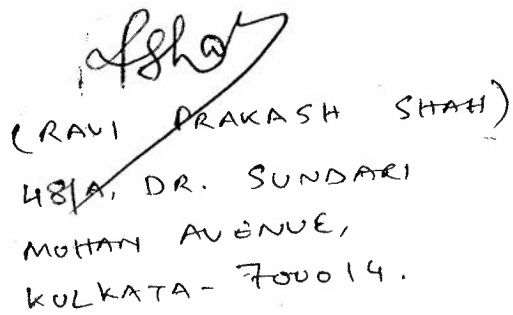 (RAVI PRAKASH SHAH)
48/A, DR. SUNDARI
MOHAN AVENUE,
KOLKATA - 700014.